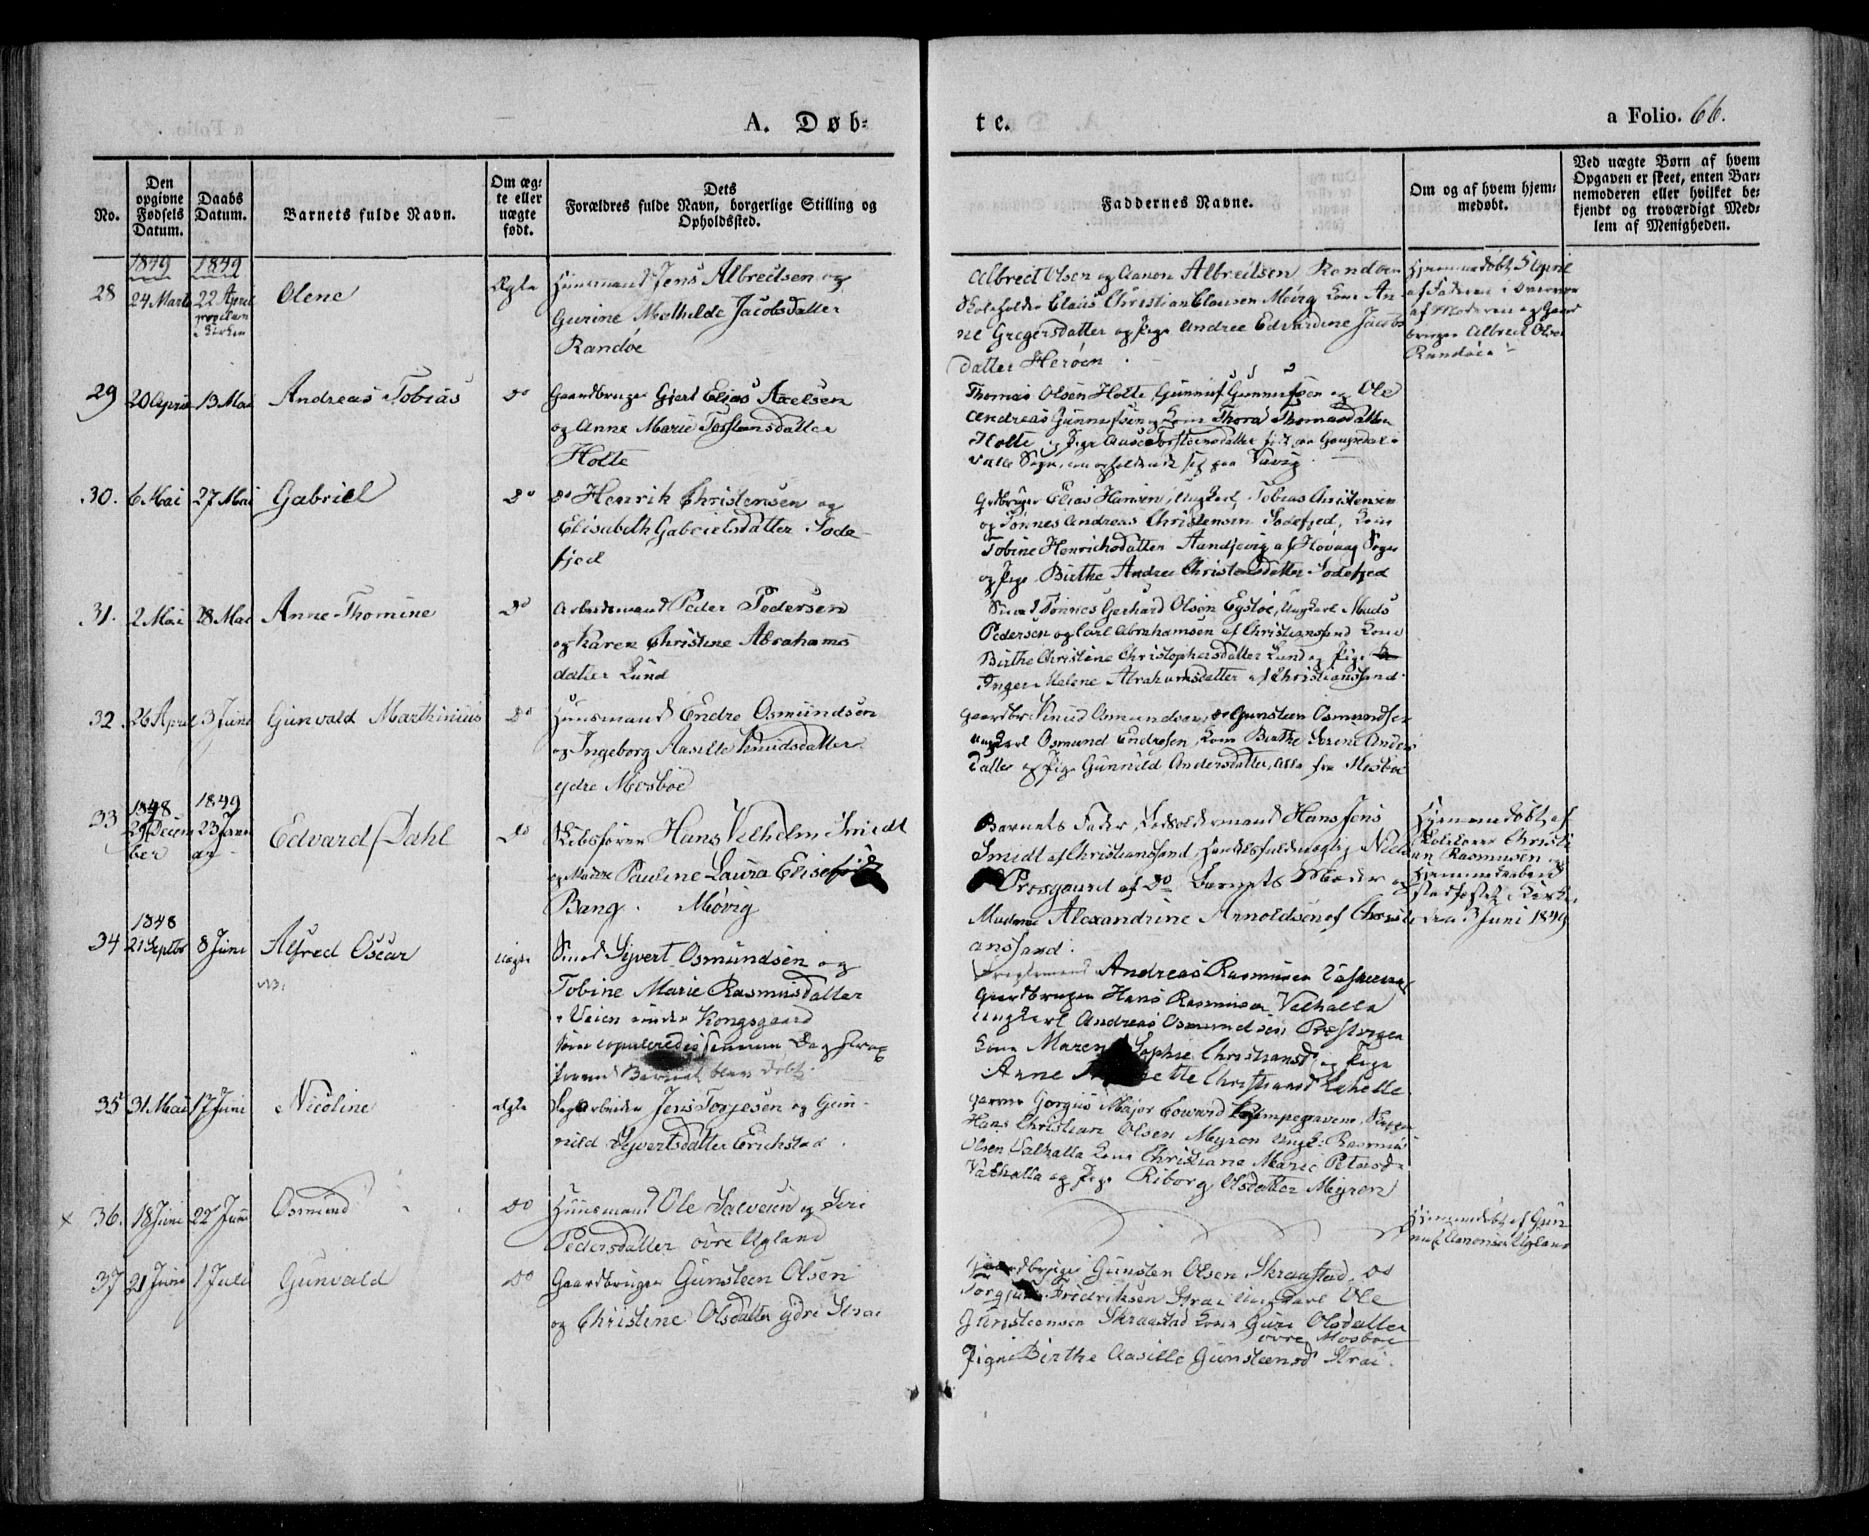 A. Døb-
te.
a Folio. 66.
No.
Den
opgivne
Fødsels
Datum.
Daabs
Datum.
Barnets fulde Navn.
Om æg-
te eller
uægte
født.
Dets
Forældres fulde Navn, borgerlige Stilling og
Opholdssted.
Faddernes Navne.
Om og af hvem hjem-
medøbt.
Ved uægte Børn af hvem
Opgaven er skeet, enten Bar-
nemoderen eller hvilket be-
kjendt og troværdigt Med-
lem af Menigheden.
1849
1849
28
24 Marts
22 April
Olene
Ægte
Huusmand Jens Albretsen og
Gurine Mathilde Jacobsdatter
Randøe
Albrect Olsen og Aanon Albreitsen Randøen
Skoleholder Claus Christian Clausen Møvig Kone An-
ne Gregersdatter og Pige Andrea Edvardine Jacobs
datter Herøen.
Hjemmedøbt 5 April
af Faderen i Overvær
af Moderen og Gaard
bruger Albrect Olsen
Randøen
29
20 April
13 Mai
Andreas Tobias
Do
Gaardbruger Gjert Elias Axelsen
og Anne Marie Torstensdatter
Holte
Thomas Olsen Holte, Gunnuf Gunnufsen og Ole
Andreas Gunnufsen, Kone Thora Thomasdatter
Holte og Pige Aase Torsteinsdatter
Valle Sogn, nu opholdende sig paa Vaavig
30.
6 Mai
27 Mai
Gabriel
Do
Do Henrik Christensen og
Elisabeth Gabrielsdatter Sode-
fjed
Grdbruger Elias Hansen, Ungkarl Tobias Christensen
og Tønnes Andreas Christensen Sodefjed, Kone
Tobine Henrichsdatter af Høvaag Sogn
og Pige Birthe Andrea Christensdatter Sodefjed
31.
2 Mai
28 Mai
Anne Thomine
Do
Arbeidsmand Peder Pedersen
og Karen Christine Abrahams
datter Lund
Smed Tønnes Gerhard Olsen Egsøe, Ungkarl Mads
Pedersen og Carl Abrahamsen af Christianssand Kone
Birthe Christine Christophersdatter Lund og Pige
Inger Malene Abrahamsdatter af Christianssand
32.
26 April
3 Juni
Gunvald Marthinius
Do
Huusmand Endre Osmundsen
og Ingeborg Aasille Knudsdatter
ydre Mosbøe
Gaardbr. Knud Osmundsen, Do Gunsteen Osmundsen
Ungkarl Osmund Endresen, Kone Birthe Serine Anders
datter og Pige Gunnild Andersdatter, alle fra Mosbøe
33
1848
29 Decem
ber
1849
23 Janu
ar
Edvard Dahl
Do
Skibsfører Hans Vilhelm Smidt
og Madme Pauline Laura Elise
Bang. Møvig
Barnets Fader, Hans Jens
Smidt af Christianssand, Handelsfuldmægtig
Prosgaard af Do Barnets Moder og
Madame Alexandrine Arnoldsen af Christi
anssand.
Hjemmedøbt af
Skolelærer Christi
an Rasmussen og
Hjemmedaaben
stadfæstet i Kirken
den 3 Juni 1849
34
1848
21 Septbr
8 Juni
Alfred Oscar
NB.
Uægte
Smed Syvert Osmundsen og
Tobine Marie Rasmusdatter
Veien under Kongsgaard
som copuleredes samme Dag
Barnet blev døbt.
Andreas Rasmussen
Gaardbruger Hans Rasmusen Valhalla
Ungkarl Andreas Osmundsen
Kone Maren Sophie Christiansd og Pige
Anne Christiansd
35
31 Mai
17 Juni
Nicoline
Ægte
Jens Torjesen og Gun-
nild Syvertsdatter Erichstad.
Major Edward
Hans Christian Olsen Myren Ungk: Rasmus
Olsen Valhalla Kone Christiane Marie Petersd
Valhalla og Pige Riborg Olsdatter Myren
x
36.
18 Juni
22 Juni
Osmund
Do
Huusmand Ole Salvesen og Siri
Pedersdatter øvre Ugland
Hjemmedøbt af Gun
nuf Aanonsen Ugland
37
21 Juni
1 Juli
Gunvald
Do
Gaardbruger Gunsteen Olsen
og Christine Olsdatter ydre Strai
Gaardbruger Gunsten Olsen Skraastad, Do
Fredriksen Strai Ungkarl Ole
Gunsteensen Skraastad Kone Guri Olsdatter
øvre Mosbøe
Pige Birthe Aasille Gunsteensd Strai.